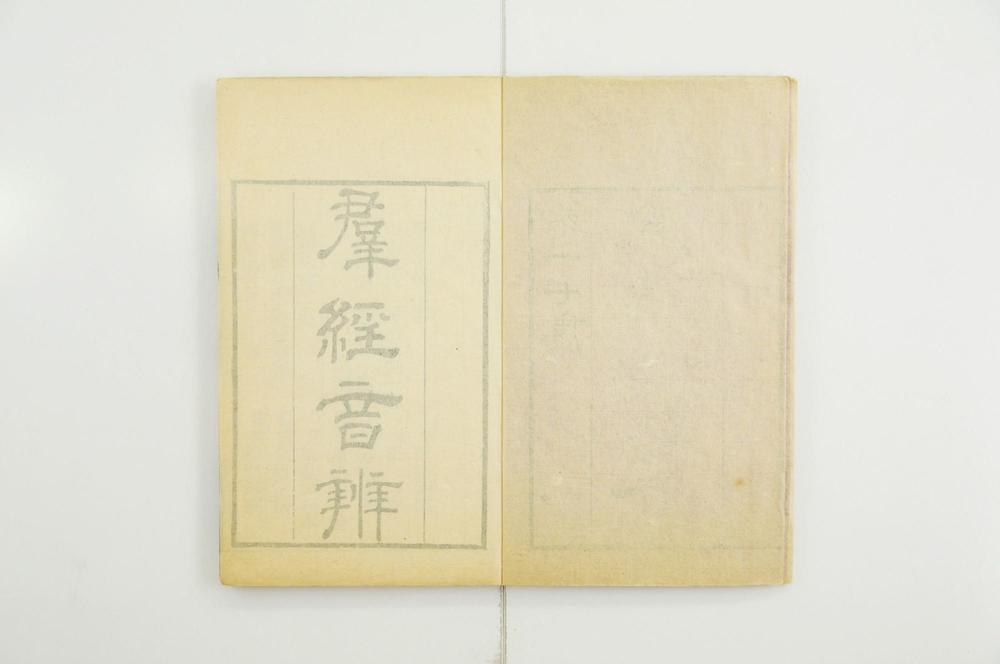 羣經音辨